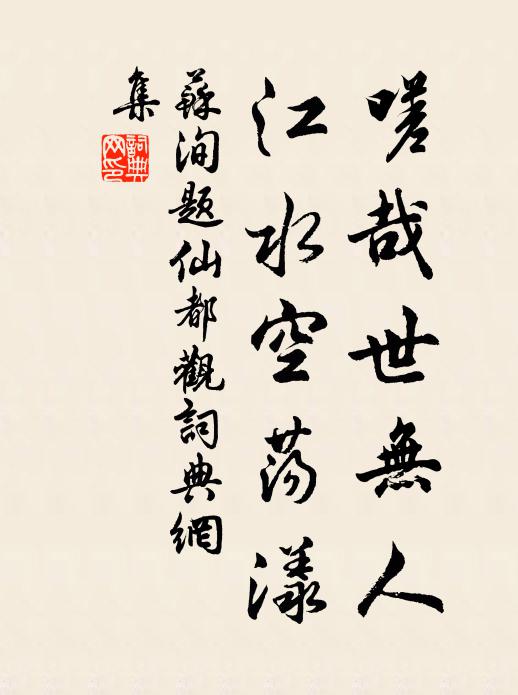 嗟哉世無人
江水空蕩漾
蘇洵題仙都觀詞典網
集
詞典網印